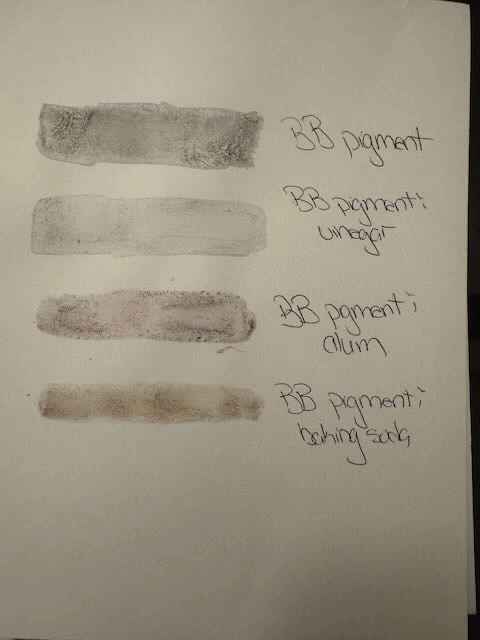 BB pigment
BB pigment;
vinegar
BB pgment;
alum
BB pigment;
baking soda